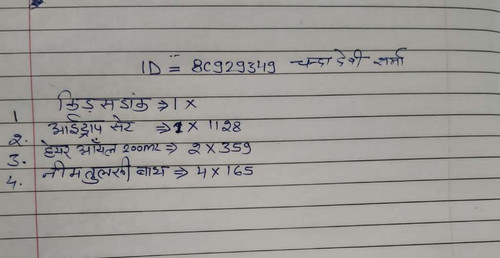 ID = 8C929349 चन्दा देवी शर्मा
1 किड़सडांक ⇒ 1 x
2. आईड्राप सेट ⇒ 1 x 1128
3. हेयर ऑयल 200ML ⇒ 2 x 359
4. नीम तुलसी बाथ ⇒ 4 x 165